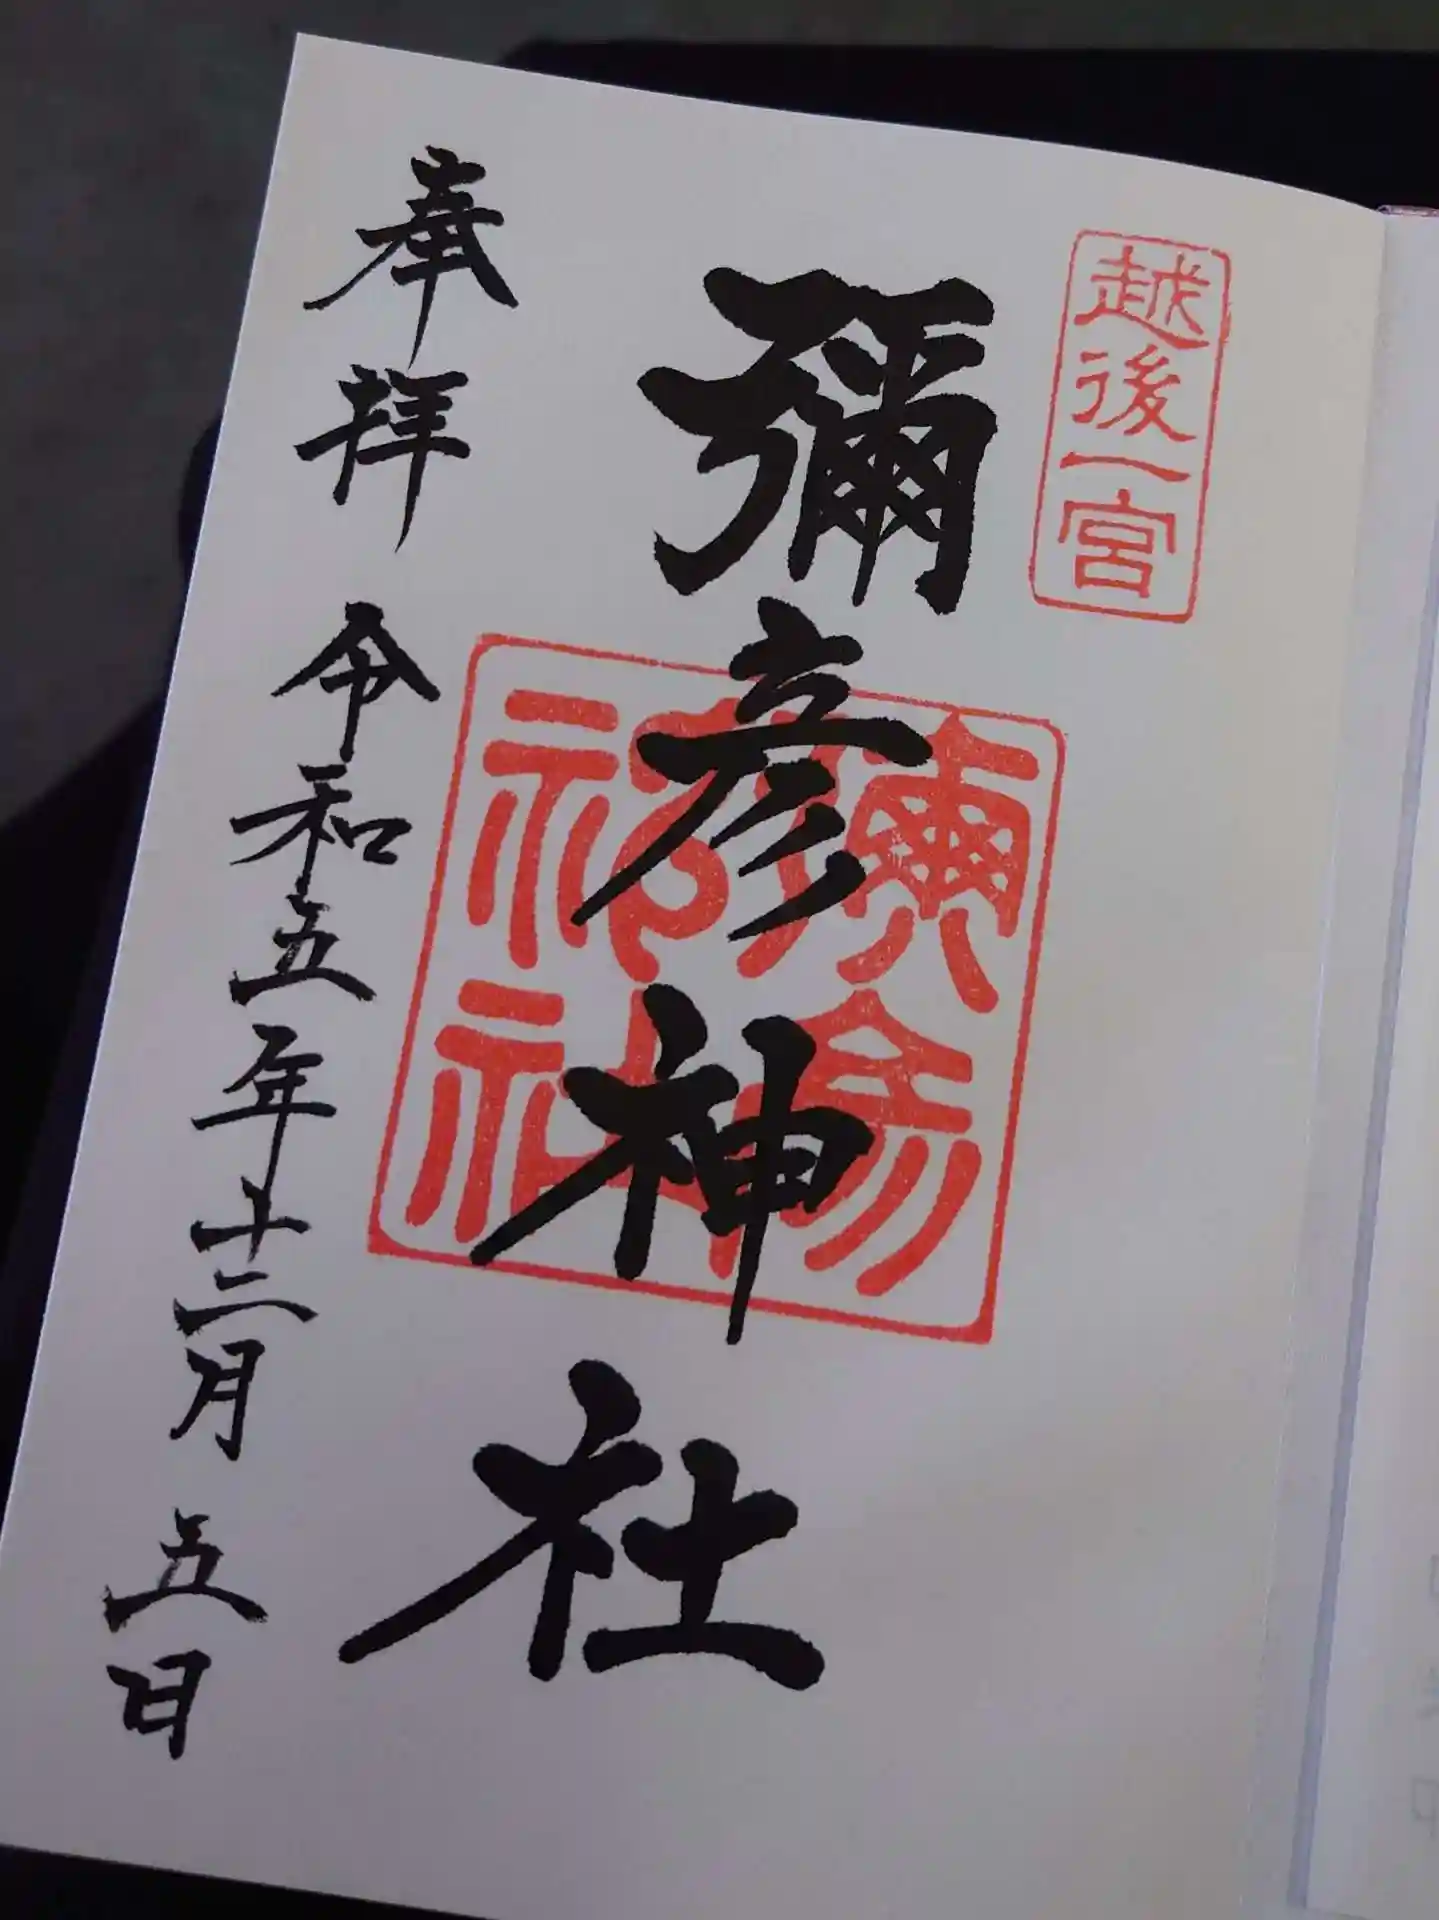 越後一宮
彌彦神社
彌彦神社
奉拝 令和五年十二月五日